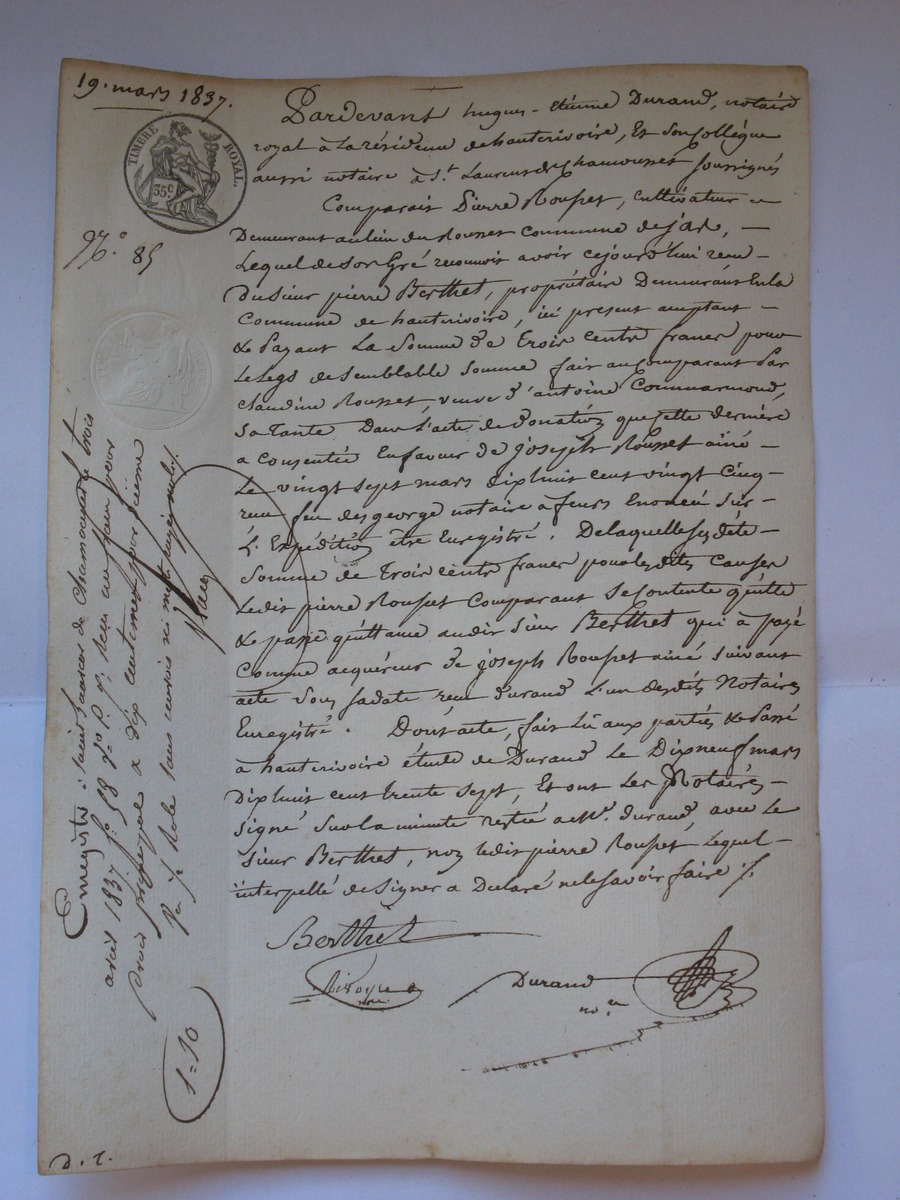 19. mars 1837.
TIMBRE ROYAL.
35c.
N.° 85
Pardevant hugues - étienne Durand, notaire
royal à la résidence de hauterivoire, Et son Collègue
aussi notaire à St. Laurent de chamousset soussignés
Comparait Pierre Rousset, cultivateur
Demeurant au lieu du Rousset commune de
Lequel de son Gré reconnoit avoir cejourd'hui reçu
Du sieur pierre Berthet, propriétaire Demeurant En la
Commune de hauterivoire, ici present acceptant
& Payant La Somme De trois cents francs pour
Le Legs de semblable somme fait au comparant Par
claudine Rousset, veuve d'antoine Commarmond,
sa tante Dans L'acte de Donation que cette dernière
a consentie En faveur de joseph Rousset ainé -
Le vingt sept mars dixhuit cent vingt cinq -
reçu feu desgeorge notaire à feurs Enoncée sur -
L'Expédition être Enregistré. De laquelle susdite -
Somme de trois cents francs pour les dites causes
Ledit pierre Rousset Comparant se contente quitte
& passe quittance audit sieur Berthet qui à payé
Comme acquéreur de joseph Rousset ainé suivant
acte sous sa date reçu durand L'un desdits Notaires
Enregistré. Dont acte, fait Lu aux parties & Passé
à hauterivoire étude de Durand Le Dixneuf mars
Dixhuit cent trente sept, Et ont Les Notaires -
signé sur la minute restée à Me. durand, avec Le
sieur Berthet, non ledit pierre Rousset Lequel -
interpellé de signer a Déclaré ne le savoir faire ./.
Berthet
Durand
no.re
Enregistré à Saint Laurent de Chamousset le trois
avril 1837 f.° 58 v.° reçu un franc pour
droit principal & dix centimes pour dixième
sans renvois ni mots rayés nuls.
1=10
D. r.